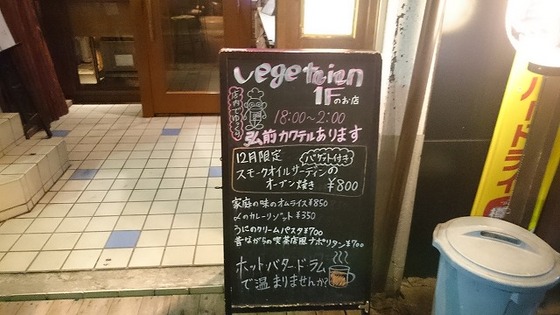 vegetaian
1Fのお店
店内でゆるり
18:00〜2:00
弘前カクテルあります
12月限定
バゲット付き
スモークオイルサーディンの
オーブン焼き ¥800
家庭の味のオムライス¥850
〆のカレーリゾット ¥350
うにのクリームパスタ¥700
昔ながらの喫茶店風ナポリタン¥700
ホットバタードラム
で温まりませんか?
ハードライ